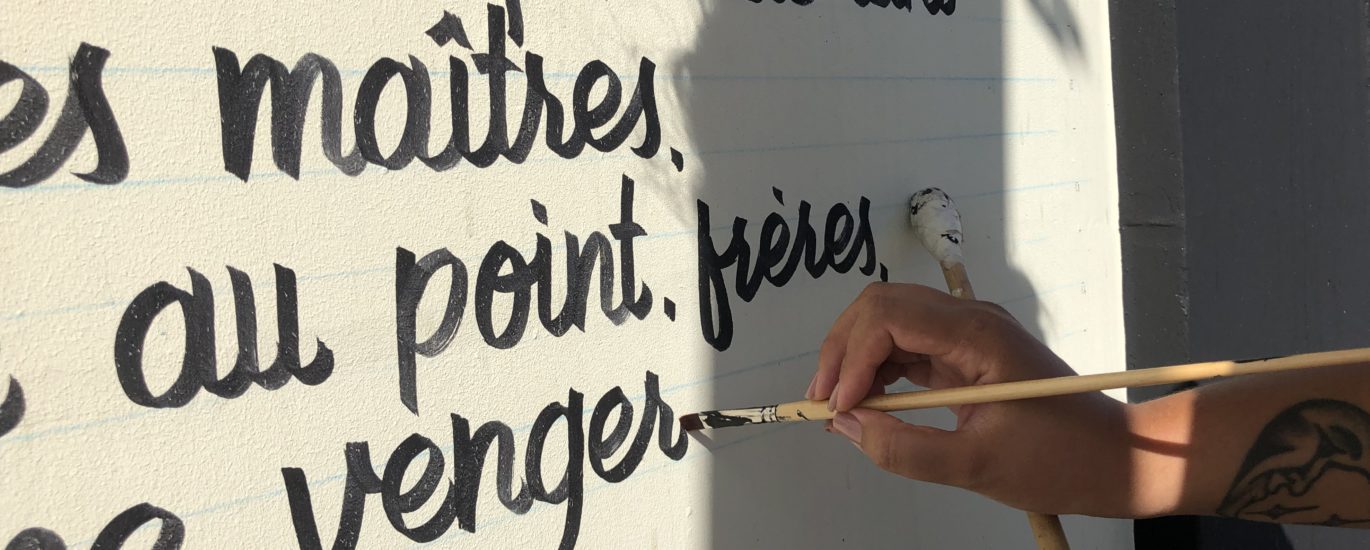 es maîtres,
au point. frères,
venger